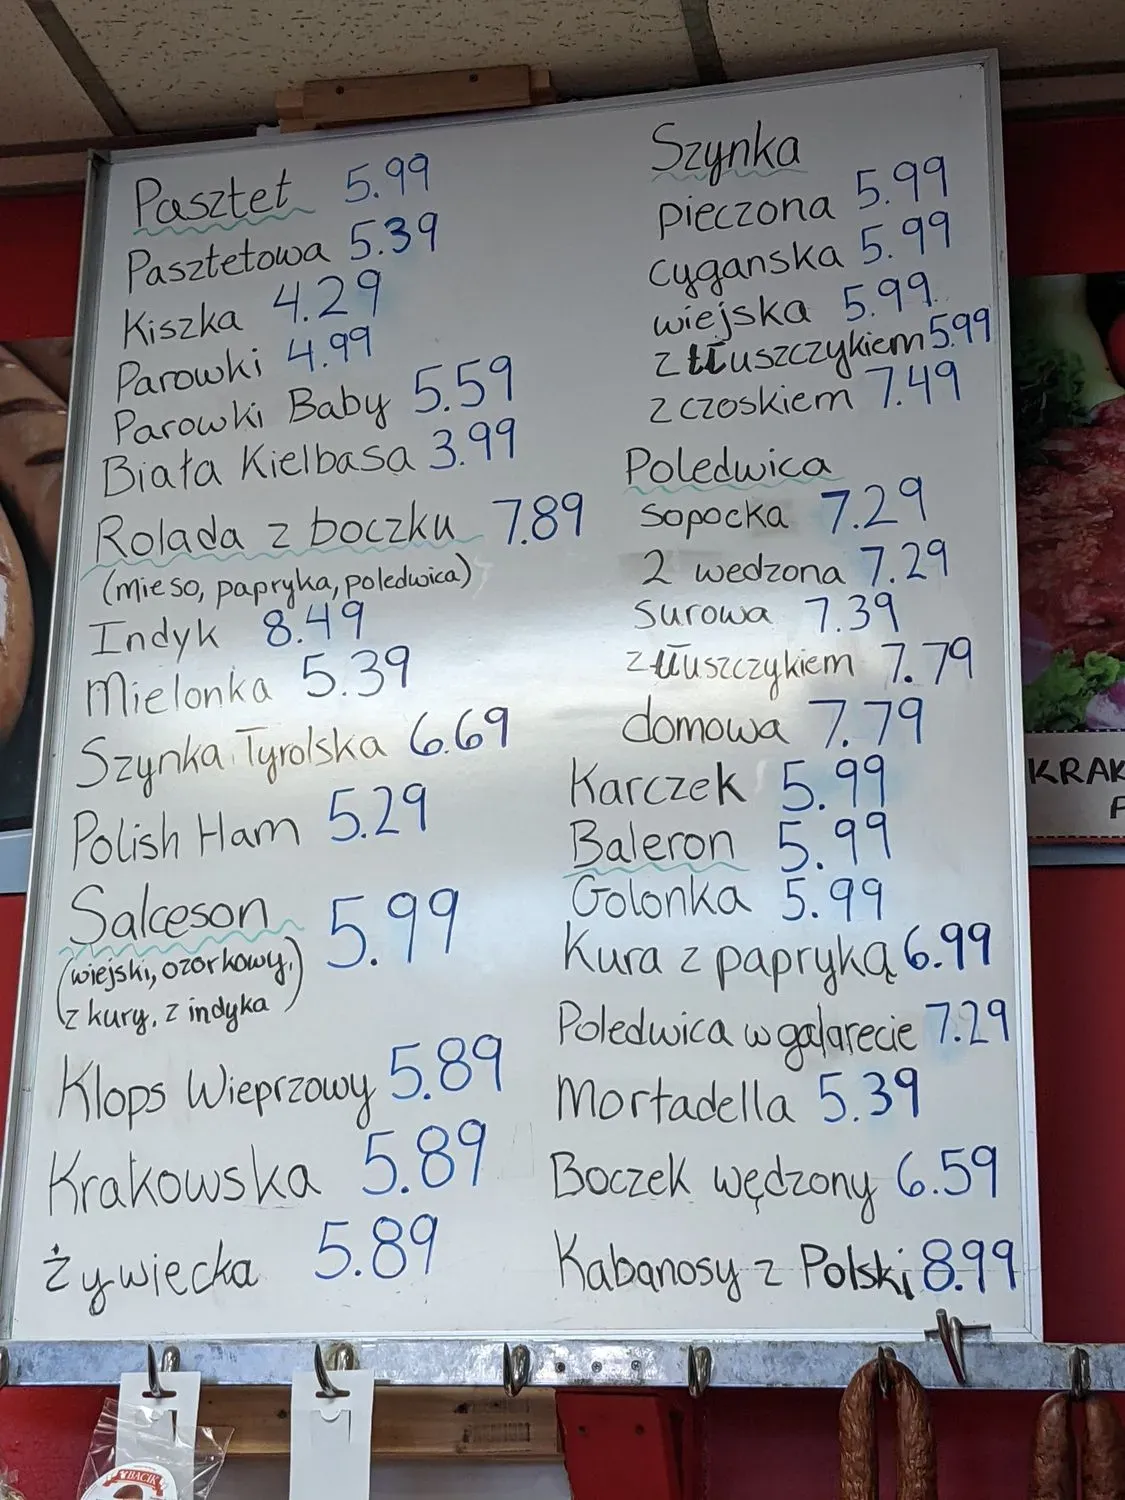 Pasztet 5.99
Pasztetowa 5.39
Kiszka 4.29
Parowki 4.99
Parowki Baby 5.59
Biała Kielbasa 3.99
Rolada z boczku 7.89
(mieso, papryka, poledwica)
Indyk 8.49
Mielonka 5.39
Szynka Tyrolska 6.69
Polish Ham 5.29
Salceson 5.99
(wiejski, ozorkowy,
z kury, z indyka)
Klops Wieprzowy 5.89
Krakowska 5.89
Żywiecka 5.89
Szynka
pieczona 5.99
cyganska 5.99
wiejska 5.99
z tłuszczykiem 5.99
z czoskiem 7.49
Poledwica
sopocka 7.29
2 wedzona 7.29
surowa 7.39
z tłuszczykiem 7.79
domowa 7.79
Karczek 5.99
Baleron 5.99
Golonka 5.99
Kura z papryką 6.99
Poledwica w galarecie 7.29
Mortadella 5.39
Boczek wędzony 6.59
Kabanosy z Polski 8.99
KRAK
P
BACIK